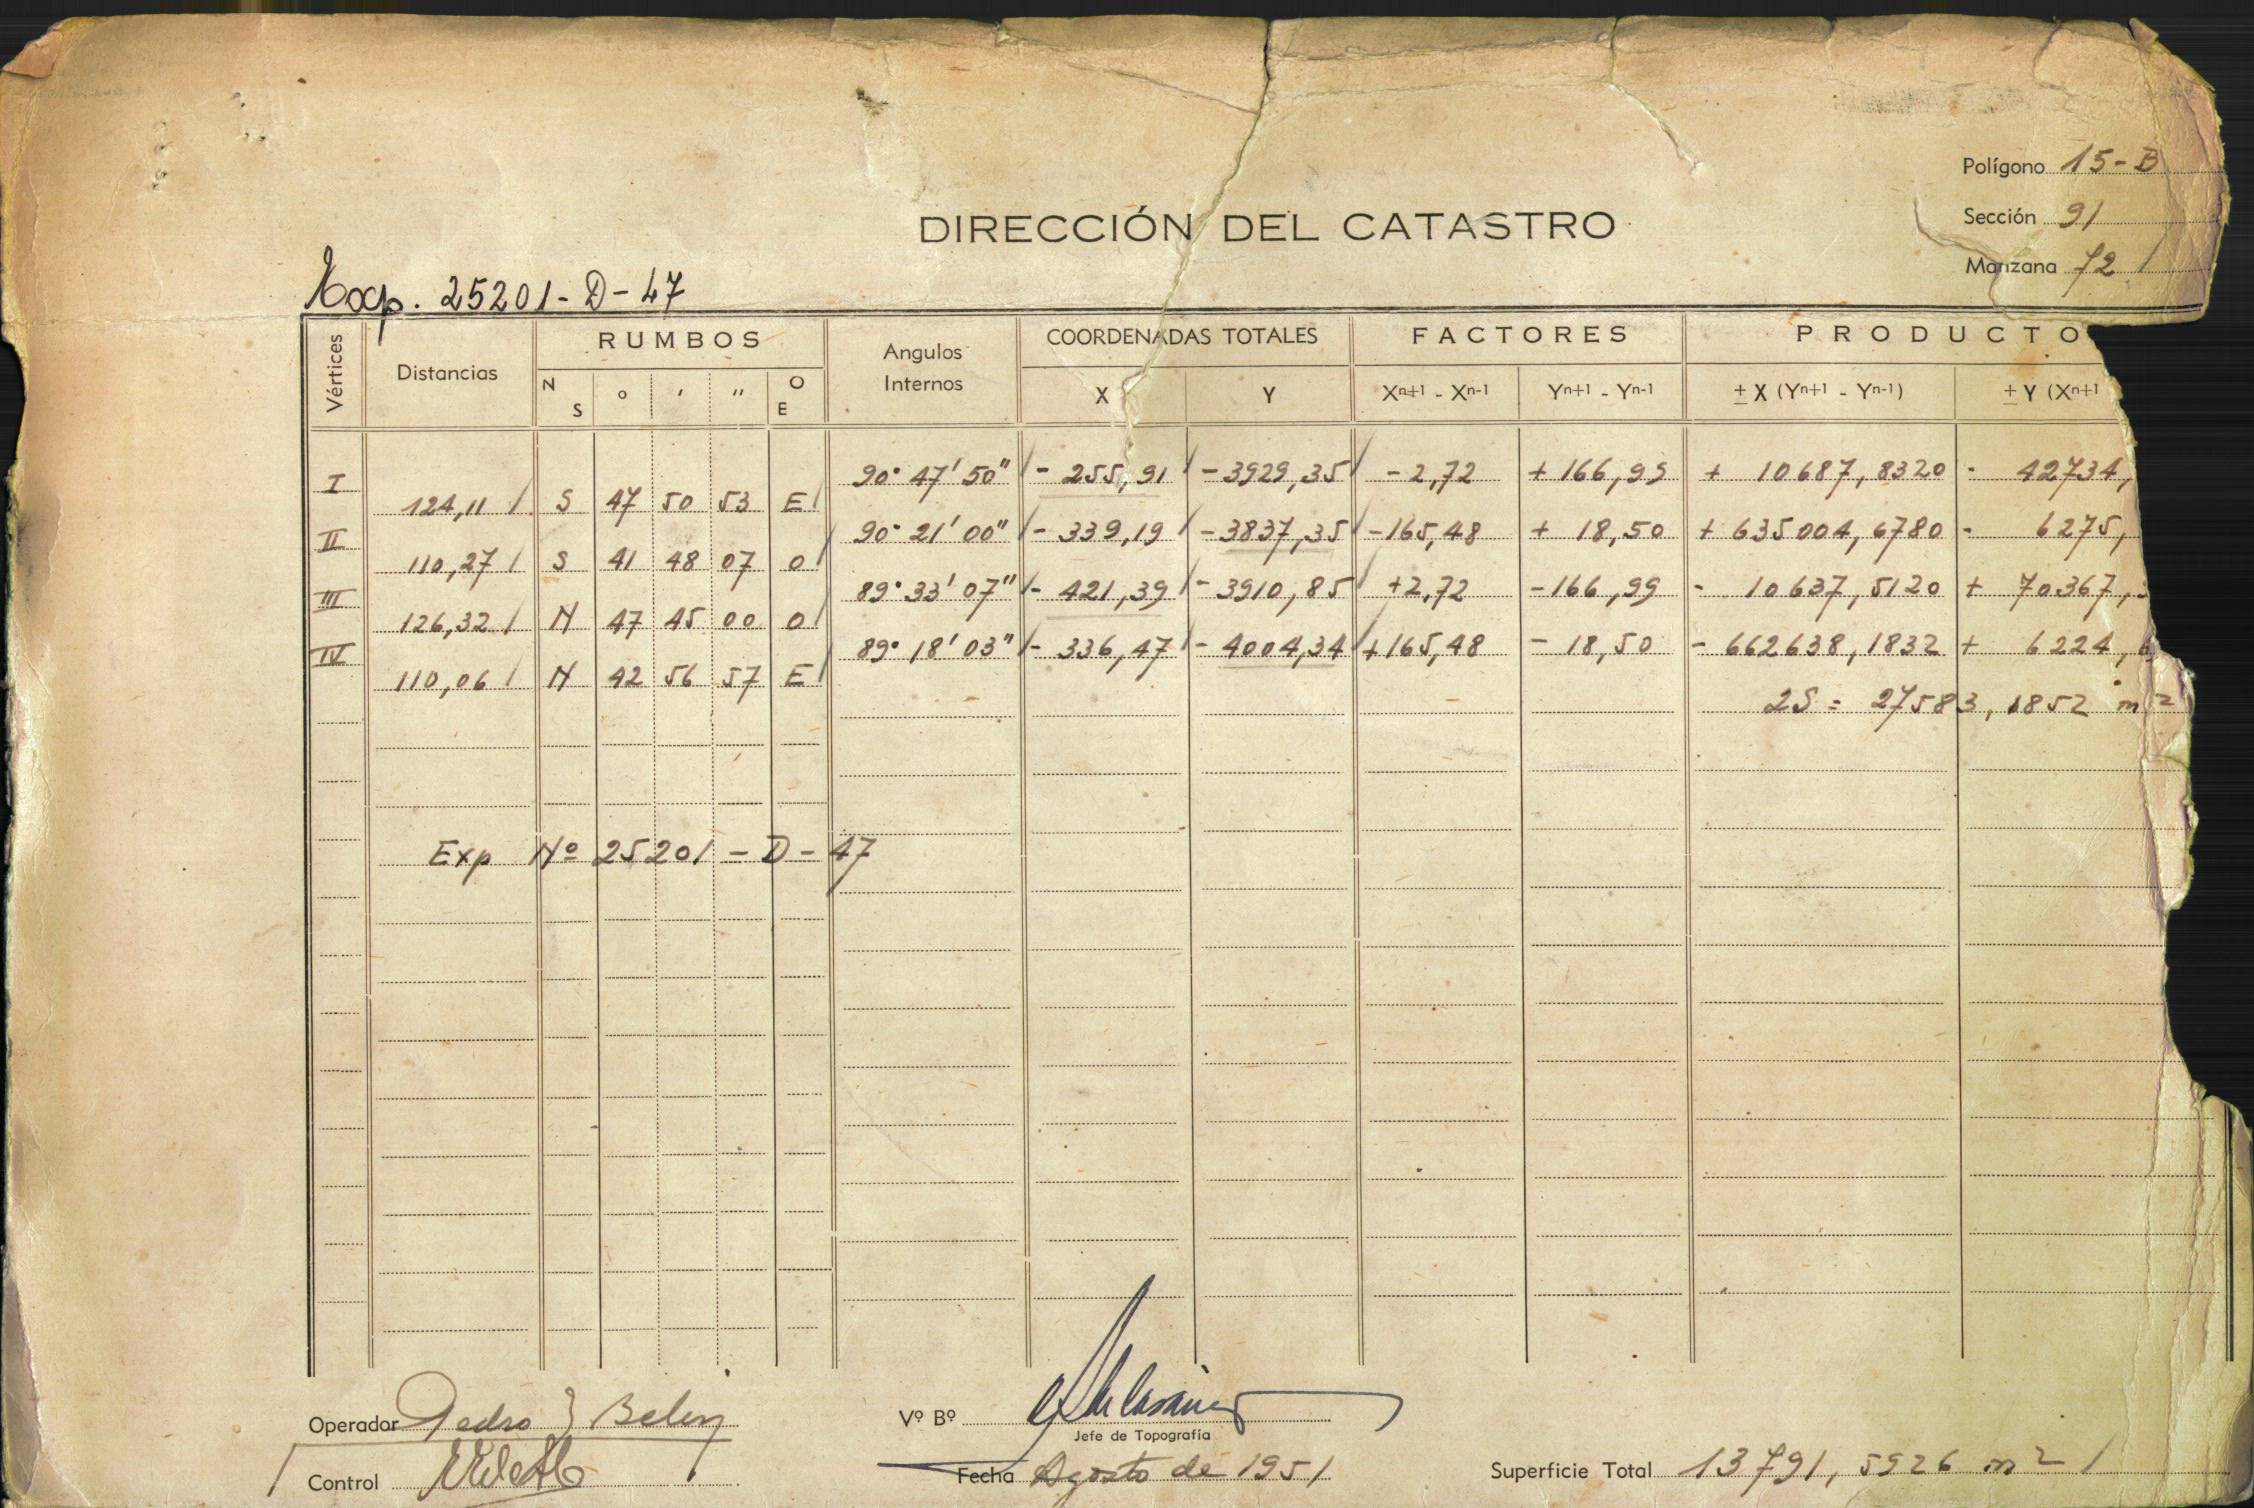 Polígono 15-B
Sección 91
Manzana 72
DIRECCIÓN DEL CATASTRO
Exp. 25201-D-47
Vértices Distancias RUMBOS Angulos Internos COORDENADAS TOTALES FACTORES PRODUCTO
N S ° ' " O E X Y Xn+1 - Xn-1 Yn+1 - Yn-1 ± X (Yn+1 - Yn-1) ± Y (Xn+1
I 90° 47' 50" - 255,91 - 3929,35 - 2,72 + 166,99 + 10687,8320 - 42734,
124,11 S 47 50 53 E
II 90° 21' 00" - 339,19 - 3837,35 - 165,48 + 18,50 + 635004,6780 - 6275,
110,27 S 41 48 07 O
III 89° 33' 07" - 421,39 - 3910,85 + 2,72 - 166,99 - 10637,5120 + 70367,
126,32 N 47 45 00 O
IV 89° 18' 03" - 336,47 - 4004,34 + 165,48 - 18,50 - 662638,1832 + 6224,6
110,06 N 42 56 57 E
2S = 27583,1852 m2
Exp Nº 25201 - D - 47
Operador Pedro
Vº Bº
Jefe de Topografía
Control
Fecha Agosto de 1951
Superficie Total 13791,5926 m2